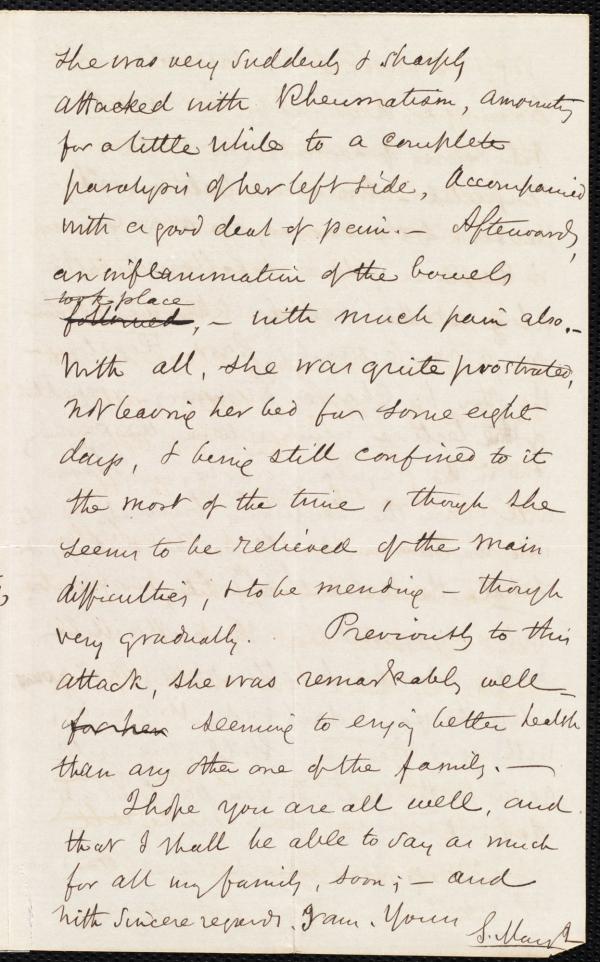 she was very suddenly & sharply
attacked with Rheumatism, amounting
for a little while to a complete
paralysis of her left side, accompanied
with a good deal of pain. — Afterwards,
an inflammation of the bowels
took place
followed, — with much pain also. —
With all, she was quite prostrated,
not leaving her bed for some eight
days, & being still confined to it
the most of the time, though she
seems to be relieved of the main
difficulties, & to be mending — though
very gradually. Previously to this
attack, she was remarkably well —
for her seeming to enjoy better health
than any other one of the family. —
I hope you are all well, and
that I shall be able to say as much
for all my family, soon; — and
with sincere regards. I am. Yours
S. May Jr